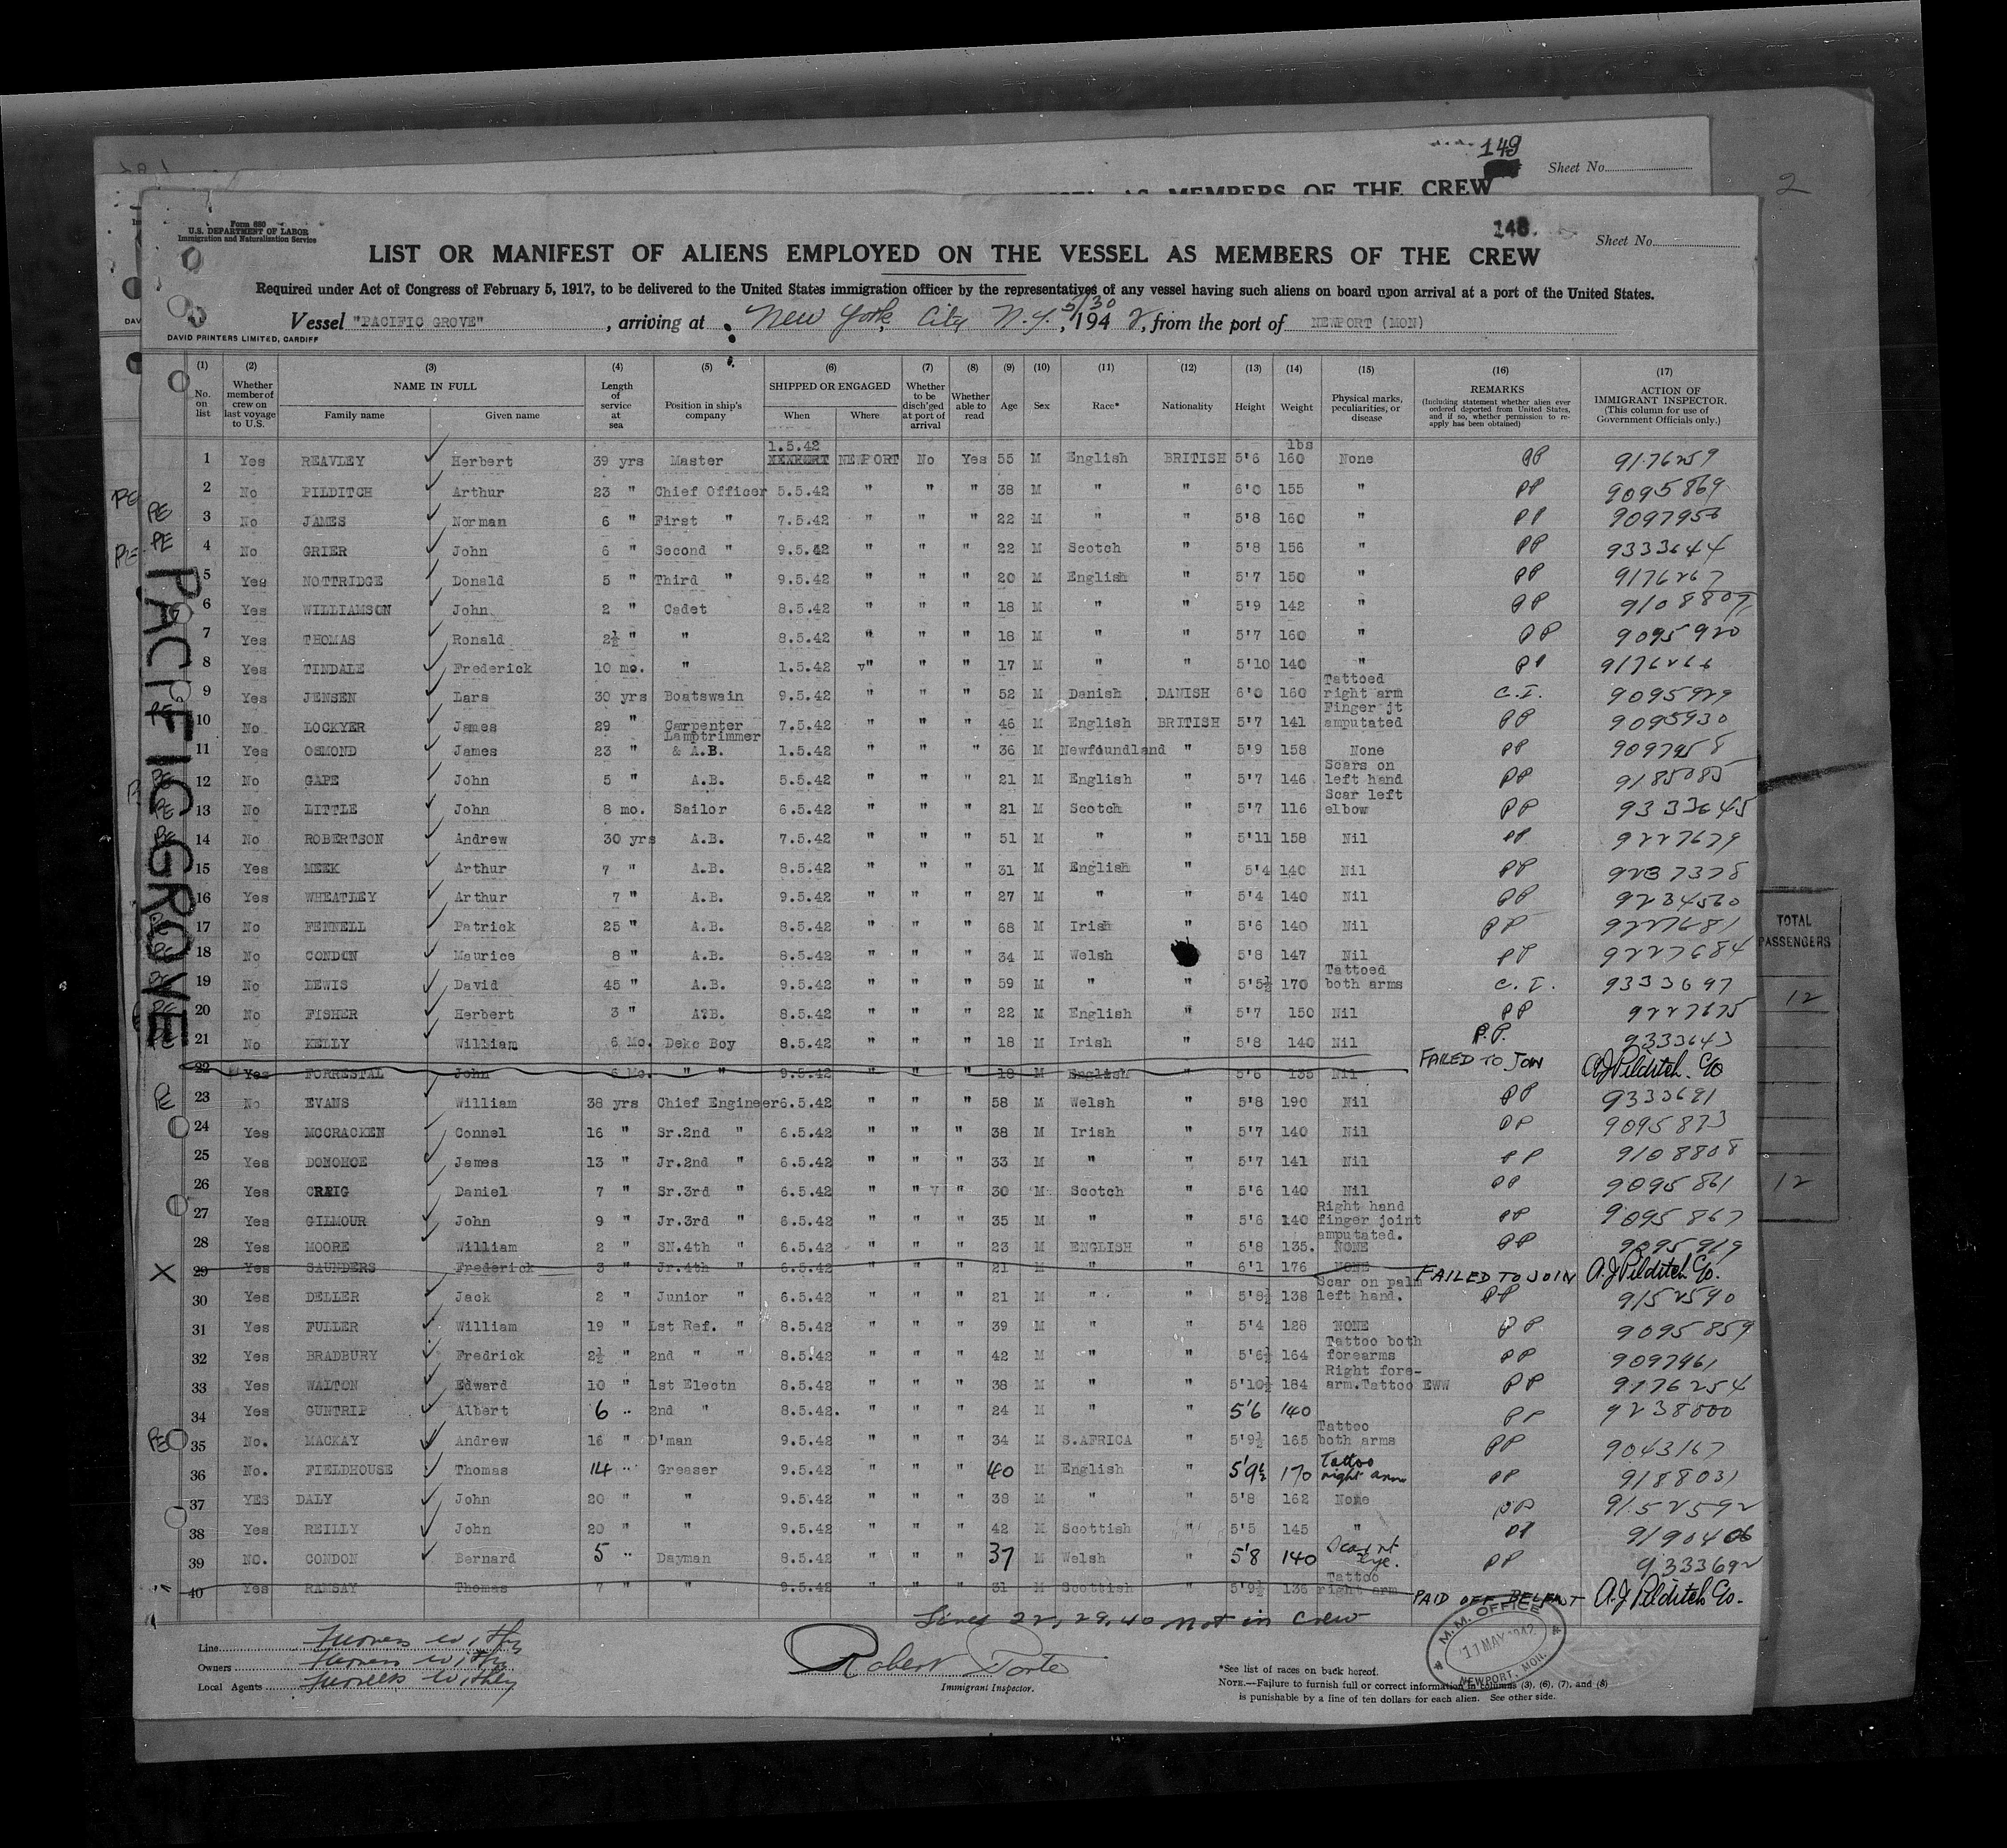 149
Sheet No.
AS MEMBERS OF THE CREW
2
Form 680
U.S. DEPARTMENT OF LABOR
Immigration and Naturalization Service
148.
Sheet No.
LIST OR MANIFEST OF ALIENS EMPLOYED ON THE VESSEL AS MEMBERS OF THE CREW
Required under Act of Congress of February 5, 1917, to be delivered to the United States immigration officer by the representatives of any vessel having such aliens on board upon arrival at a port of the United States.
Vessel "PACIFIC GROVE", arriving at New York City N.Y., 5/30 1942, from the port of NEWPORT (MON)
DAVID PRINTERS LIMITED, CARDIFF
(1) (2) (3) (4) (5) (6) (7) (8) (9) (10) (11) (12) (13) (14) (15) (16) (17)
No. on list
Whether member of crew on last voyage to U.S.
NAME IN FULL
Family name Given name
Length of service at sea
Position in ship's company
SHIPPED OR ENGAGED
When Where
Whether to be disch'ged at port of arrival
Whether able to read
Age
Sex
Race*
Nationality
Height
Weight
Physical marks, peculiarities, or disease
REMARKS
(Including statement whether alien ever ordered deported from United States, and if so, whether permission to re-apply has been obtained)
ACTION OF IMMIGRANT INSPECTOR.
(This column for use of Government Officials only.)
1 Yes REAVLEY Herbert 39 yrs Master 1.5.42 NEWPORT No Yes 55 M English BRITISH 5'6 160 lbs None PP 9176259
2 No PILDITCH Arthur 23 " Chief Officer 5.5.42 " " " 38 M " " 6'0 155 " PP 9095869
3 No JAMES Norman 6 " First " 7.5.42 " " " 22 M " " 5'8 160 " PP 9097956
4 No GRIER John 6 " Second " 9.5.42 " " " 22 M Scotch " 5'8 156 " PP 9333644
5 Yes NOTTRIDGE Donald 5 " Third " 9.5.42 " " " 20 M English " 5'7 150 " PP 9176267
6 Yes WILLIAMSON John 2 " Cadet 8.5.42 " " " 18 M " " 5'9 142 " PP 9108807
7 Yes THOMAS Ronald 2½ " " 8.5.42 " " " 18 M " " 5'7 160 " PP 9095920
8 Yes TINDALE Frederick 10 mo. " 1.5.42 " " " 17 M " " 5'10 140 " PP 9176266
9 Yes JENSEN Lars 30 yrs Boatswain 9.5.42 " " " 52 M Danish DANISH 6'0 160 Tattoed right arm C.I. 9095929
10 No LOCKYER James 29 " Carpenter 7.5.42 " " " 46 M English BRITISH 5'7 141 Finger jt amputated PP 9095930
11 Yes OSMOND James 23 " Lamptrimmer & A.B. 1.5.42 " " " 36 M Newfoundland " 5'9 158 None PP 9097958
12 No GAPE John 5 " A.B. 5.5.42 " " " 21 M English " 5'7 146 Scars on left hand PP 9185085
13 No LITTLE John 8 mo. Sailor 6.5.42 " " " 21 M Scotch " 5'7 116 Scar left elbow PP 9333645
14 No ROBERTSON Andrew 30 yrs A.B. 7.5.42 " " " 51 M " " 5'11 158 Nil PP 9227679
15 Yes MEEK Arthur 7 " A.B. 8.5.42 " " " 31 M English " 5'4 140 Nil PP 9237378
16 Yes WHEATLEY Arthur 7 " A.B. 9.5.42 " " " 27 M " " 5'4 140 Nil PP 9234560
17 No FENNELL Patrick 25 " A.B. 8.5.42 " " " 68 M Irish " 5'6 140 Nil PP 9227681
18 No CONDON Maurice 8 " A.B. 8.5.42 " " " 34 M Welsh 5'8 147 Nil PP 9227684
19 No LEWIS David 45 " A.B. 9.5.42 " " " 59 M " " 5'5½ 170 Tattoed both arms C.I. 9333697
20 No FISHER Herbert 3 " A.B. 8.5.42 " " " 22 M English " 5'7 150 Nil PP 9227675
21 No KELLY William 6 Mo. Deke Boy 8.5.42 " " " 18 M Irish " 5'8 140 Nil P.P. 9333643
22 Yes FORRESTAL John 6 Mo. " " 9.5.42 " " " 18 M English " 5'6 135 Nil FAILED TO JOIN A.J Pilditch. C/o
23 No EVANS William 38 yrs Chief Engineer 6.5.42 " " " 58 M Welsh " 5'8 190 Nil PP 9333691
24 Yes MCCRACKEN Connel 16 " Sr.2nd " 6.5.42 " " " 38 M Irish " 5'7 140 Nil PP 9095873
25 Yes DONOHOE James 13 " Jr.2nd " 6.5.42 " " " 33 M " " 5'7 141 Nil PP 9108808
26 Yes CRAIG Daniel 7 " Sr.3rd " 6.5.42 " " " 30 M Scotch " 5'6 140 Nil PP 9095861
27 Yes GILMOUR John 9 " Jr.3rd " 6.5.42 " " " 35 M " " 5'6 140 Right hand finger joint amputated. PP 9095867
28 Yes MOORE William 2 " SN.4th " 6.5.42 " " " 23 M ENGLISH " 5'8 135. NONE PP 9095919
29 Yes SAUNDERS Frederick 3 " Jr.4th " 6.5.42 " " " 21 M " " 6'1 176 NONE FAILED TO JOIN A.J Pilditch C/o.
30 Yes DELLER Jack 2 " Junior " 6.5.42 " " " 21 M " " 5'8½ 138 Scar on palm left hand. PP 9152590
31 Yes FULLER William 19 " 1st Ref. " 8.5.42 " " " 39 M " " 5'4 128 NONE PP 9095859
32 Yes BRADBURY Fredrick 2½ " 2nd " " 8.5.42 " " " 42 M " " 5'6½ 164 Tattoo both forearms PP 9097961
33 Yes WALTON Edward 10 " 1st Electn 8.5.42 " " " 38 M " " 5'10½ 184 Right fore-arm.Tattoo EWW PP 9176254
34 Yes GUNTRIP Albert 6 " 2nd " 8.5.42. " " " 24 M " " 5'6 140 PP 9238000
35 No. MACKAY Andrew 16 " D'man 9.5.42 " " " 34 M S.AFRICA " 5'9½ 165 Tattoo both arms PP 9043167
36 No. FIELDHOUSE Thomas 14 " Greaser 9.5.42 " " " 40 M English " 5'9½ 170 Tattoo right arm PP 9188031
37 YES DALY John 20 " " 9.5.42 " " " 38 M " " 5'8 162 None PP 9152592
38 Yes REILLY John 20 " " 9.5.42 " " " 42 M Scottish " 5'5 145 " PP 9190406
39 NO. CONDON Bernard 5 " Dayman 8.5.42 " " " 37 M Welsh " 5'8 140 Eye. PP 9333692
40 Yes RAMSAY Thomas 7 " " 9.5.42 " " " 31 M Scottish " 5'9½ 136 Tattoo right arm PAID OFF BELFAST A.J Pilditch C/o.
Lines 22, 29, 40 not in crew
PACIFIC GROVE
TOTAL PASSENGERS
12
12
Line Furness Withy
Owners Furness Withy
Local Agents Furness Withy
Robert Porte
Immigrant Inspector.
M.M. OFFICE
11 MAY 1942
NEWPORT, MON.
*See list of races on back hereof.
NOTE.—Failure to furnish full or correct information in columns (3), (6), (7), and (8)
is punishable by a fine of ten dollars for each alien. See other side.